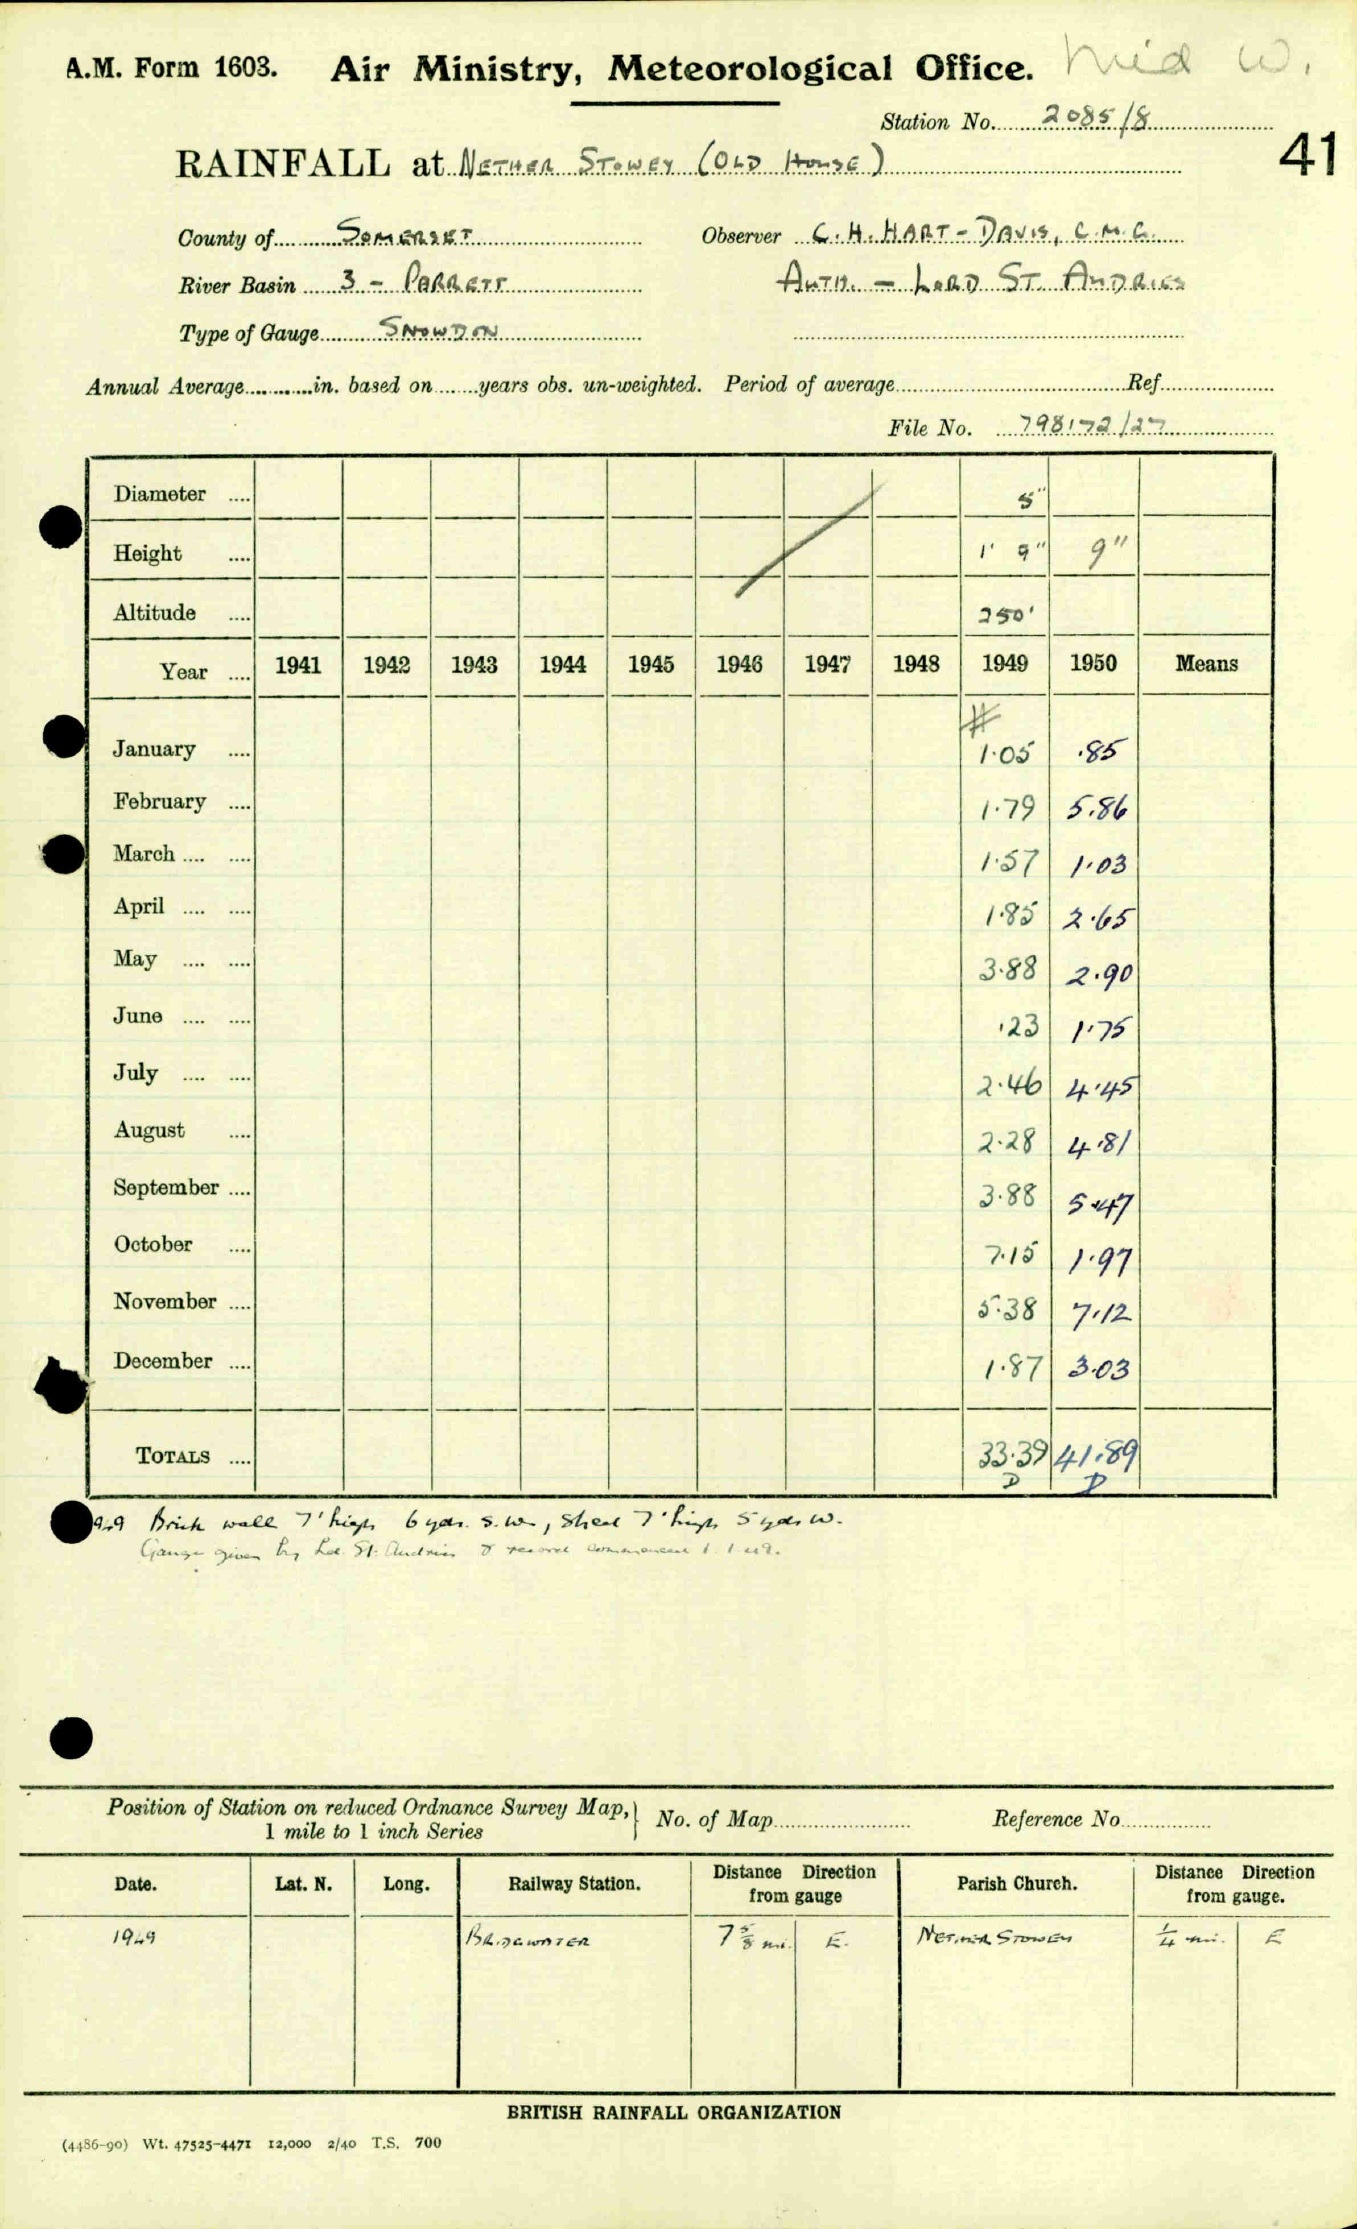 A.M. Form 1603. Air Ministry, Meteorological Office. Mid W.
Station No. 2085/8
41
RAINFALL at NETHER STOWEY (OLD HOUSE)
County of SOMERSET Observer C. H. HART-DAVIS, C.M.G.
River Basin 3 - PARRETT AUTH. - LORD ST. AUDRIES
Type of Gauge SNOWDON
Annual Average in. based on years obs. un-weighted. Period of average Ref
File No. 798172/27
Diameter 5"
Height 1' 9" 9"
Altitude 250'
Year 1941 1942 1943 1944 1945 1946 1947 1948 1949 1950 Means
#
January 1.05 .85
February 1.79 5.86
March 1.57 1.03
April 1.85 2.65
May 3.88 2.90
June .23 1.75
July 2.46 4.45
August 2.28 4.81
September 3.88 5.47
October 7.15 1.97
November 5.38 7.12
December 1.87 3.03
TOTALS 33.39 41.89
D D
949 Brick wall 7' high 6 yds. S.W., shed 7' high 5 yds W.
Gauge given by Ld. St. Audries & record commenced 1.1.49.
Position of Station on reduced Ordnance Survey Map, } No. of Map Reference No
1 mile to 1 inch Series
Date. Lat. N. Long. Railway Station. Distance from gauge Direction Parish Church. Distance from gauge. Direction
1949 BRIDGWATER 7 5/8 mi. E. NETHER STOWEY 1/4 mi. E
BRITISH RAINFALL ORGANIZATION
(4486-90) Wt. 47525-4471 12,000 2/40 T.S. 700